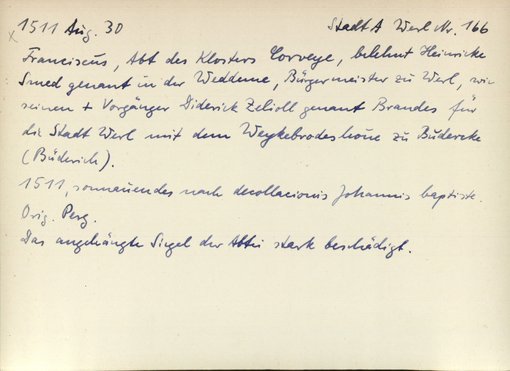 x 1511 Aug. 30 StadtA Werl Nr. 166
Franciscus, Abt des Klosters Corveye, belehnt Heinricke
Smed genant in der Weddeme, Bürgermeister zu Werl, wie
seinen + Vorgänger Diderick Zelioll genant Brandes für
die Stadt Werl mit dem Weykebrodeshöue zu Büdercke
(Büderich).
1511, sonnauendes nach decollacionis Johannis baptiste.
Orig. Perg.
Das angehängte Siegel der Abtei stark beschädigt.